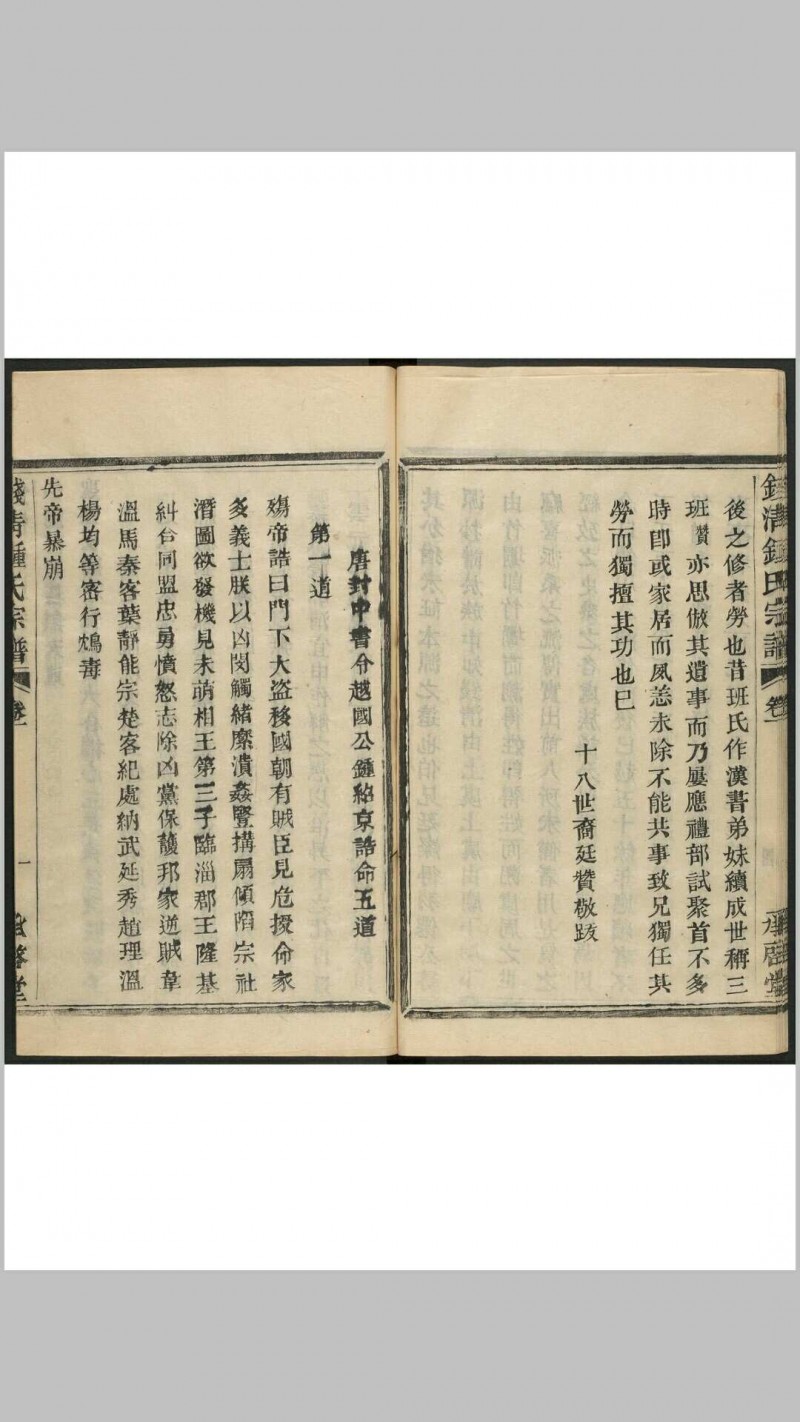 錢清鍾氏宗譜 卷一 承啓堂
後之修者勞也昔班氏作漢書弟妹續成世稱三
班贊亦思倣其遺事而乃屢應禮部試聚首不多
時卽或家居而夙恙未除不能共事致兄獨任其
勞而獨擅其功也已
十八世裔廷贊敬跋
唐封中書令越國公鍾紹京誥命五道
第一道
殤帝誥曰門下大盗移國朝有賊臣見危授命家
多義士朕以凶閔觸緒糜潰姦豎搆扇傾陷宗社
潛圖欲發機見未萌相王第三子臨淄郡王隆基
糾合同盟忠勇憤怒志除凶黨保護邦家逆賊韋
溫馬秦客葉靜能宗楚客紀處納武延秀趙理溫
楊均等密行鴆毒
先帝暴崩
錢清鍾氏宗譜 卷一 一 承啓堂